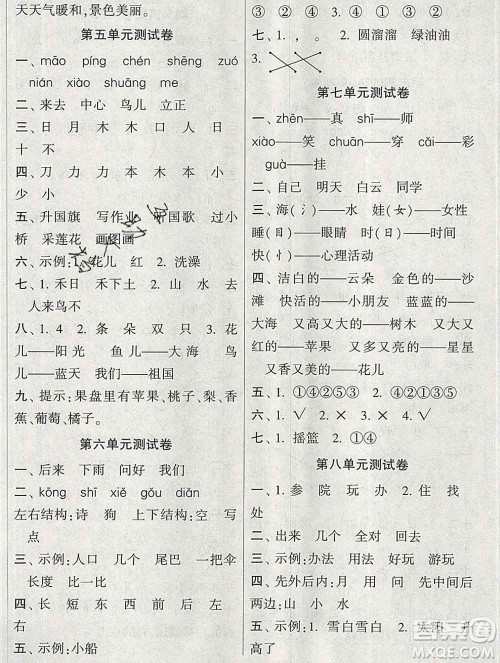 天天气暖和,景色美丽。
第五单元测试卷
一、māo píng chén shēng zuó
nián xiào shuāng me
二、来去 中心 鸟儿 立正
三、日 月 木 木 口 人 十
日
四、刀 力 力 本 木 本 小
少 小
五、升国旗 写作业 国歌 过小
桥 采莲花 画图画
六、示例:1.花儿 红 2.洗澡
七、1.禾日 禾下土 2.山 水 去
人来鸟不
八、1.4 2.条 朵 双 只 3.花
儿——阳光 鱼儿——大海 鸟儿
——蓝天 我们——祖国
九、提示:果盘里有苹果、桃子、梨、香
蕉、葡萄、橘子。
第六单元测试卷
一、后来 下雨 问好 我们
二、kōng shī xiě gǒu diǎn
左右结构:诗 狗 上下结构:空 写
点
三、示例:人口 几个 尾巴 一把伞
长度 比一比
四、长 短 东 西 前 后 左
右
五、示例:小船
③ ④ ② ①
七、1.,。 2.圆溜溜 绿油油
3.
第七单元测试卷
一、zhēn——真 shī——师
xiào——笑 chuān——穿 cǎi——彩
guà——挂
二、自己 明天 白云 同学
三、示例:海(氵)——水 娃(女)——女性
睡(目)——眼睛 时(日)——时间
快(忄)——心理活动
四、洁白的——云朵 金色的——沙
滩 快活的——小朋友 蓝蓝的——
大海 又高又大的——树木 又大又
红的——苹果 又多又亮的——星星
又香又美的——花儿
五、1.①④②⑤③ 2.④①②⑤③
六、1.√ 2.× 3.× 4.√
七、1.摇篮 2.①④
第八单元测试卷
一、1.参 院 玩 办 2.吃 居
很
二、出来 几个 全对 回去
三、示例:办法 用法 好玩 游玩
四、先外后内:月 用 先中间后
两边:山 水 小 办
五、示例:1.雪白雪白 2.太阳 升
高了
答案圈
MXQE.COM